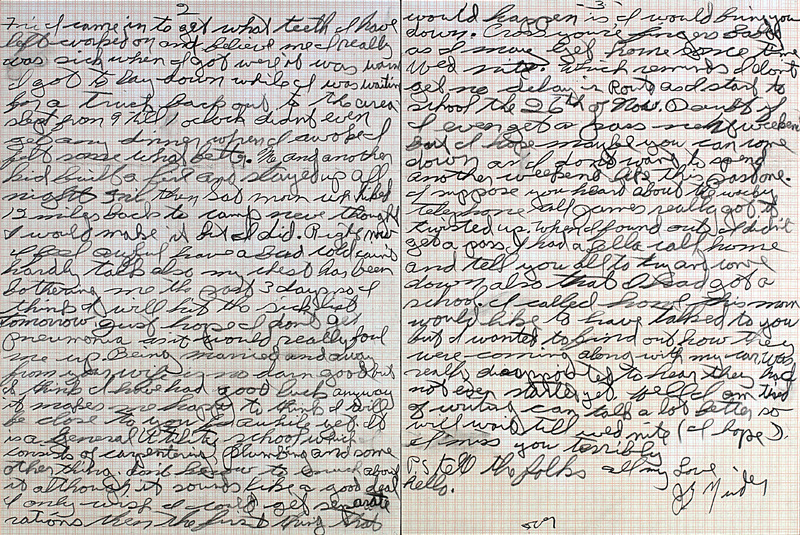 2
Fri. I came in to get what teeth I have
left worked on and believe me I really
was sick when I got were it was warm
I got to lay down while I was waiting
for a truck back out to the area
slept from 9 till 1 oclock didnt even
get any dinner when I awoke I
felt some what better. Me and another
kid built a fire and stayed up all
night Fri. then Sat morn we hiked
12 miles back to camp never thought
I would make it but I did. Right now
I feel awful have a bad cold can't
hardly talk also my chest has been
bothering me the past 3 days so I
think I will hit the sick list
tomorrow. Just hope I dont get
pneumonia as it would really foul
me up. Being married and away
from your wife is no darn good but
I think I have had good luck anyway
it makes me happy to think I will
be close to you for awhile yet. It
is a General Utility school which
consists of carpentering Plumbing and some
other thing. dont know to much about
it although it sounds like a good deal
I only wish I could get separate
rations then the first thing that
-3-
would happen is I would bring you
down. Cross your fingers
as I may get home some time
Wed nite. Which reminds I dont
get no delay in Route and start to
school the 26th of Nov. Doubt if
I even get a pass next weekend
but I hope maybe you can come
down as I dont want to spend
another weekend like this past one.
I suppose you heard about the wacky
telephone call James really got it
twisted up. When I found out I didn't
get a pass I had a fella call home
and tell you all to try and come
down also that I had got a
school. I called home this morn
would like to have talked to you
but I wanted to find out how they
were coming along with my car. Was
really disappointed to hear they had
not even started yet. Well I am tired
of writing can talk a lot better so
will wait till wed nite (I hope).
I miss you terribly
all my Love
P.S. tell the folks
hello.